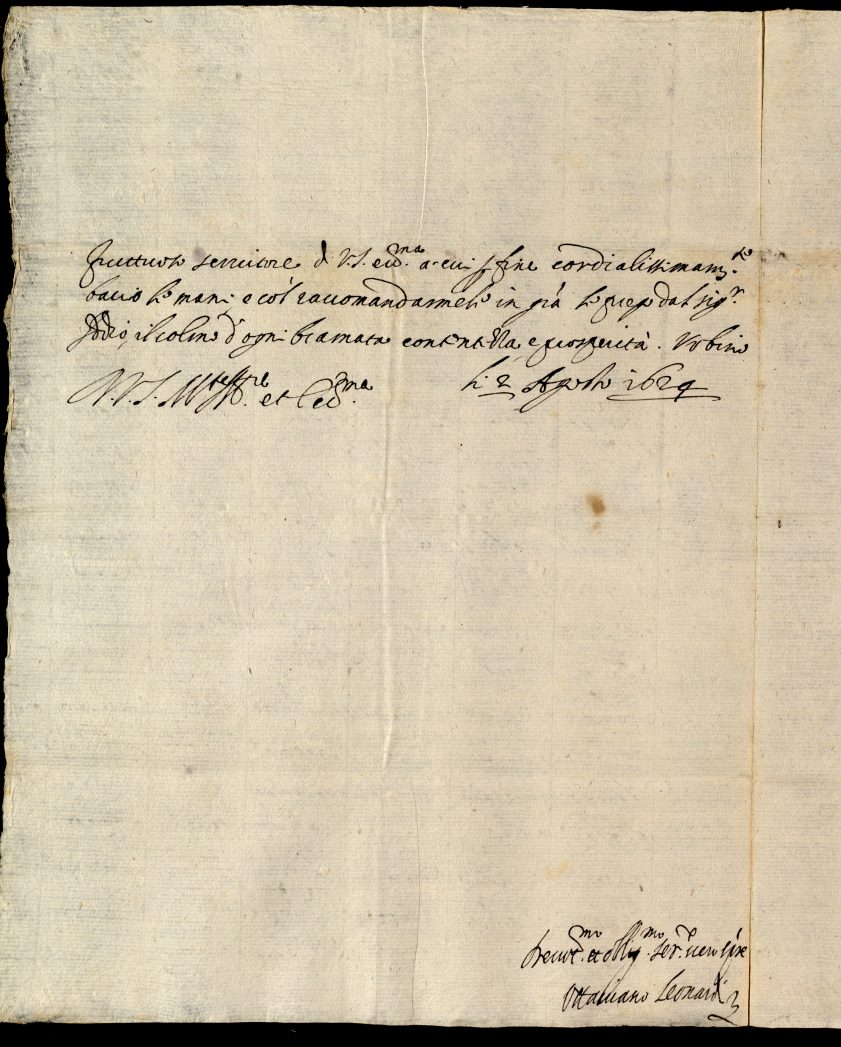 fruttuoso servitore di V.S. ecc.ma a cui p fine cordialissimam.te
bacio le mani e col raccomandarmele in grã le prego dal sig.r
Iddio il colmo d'ogni bramata contentezza e prosperità. Urbino
D. V. S. Ill.re et Ecc.ma li 2 Agosto 1629
et oblig.mo ser.re vero
Ottaviano Leonardi